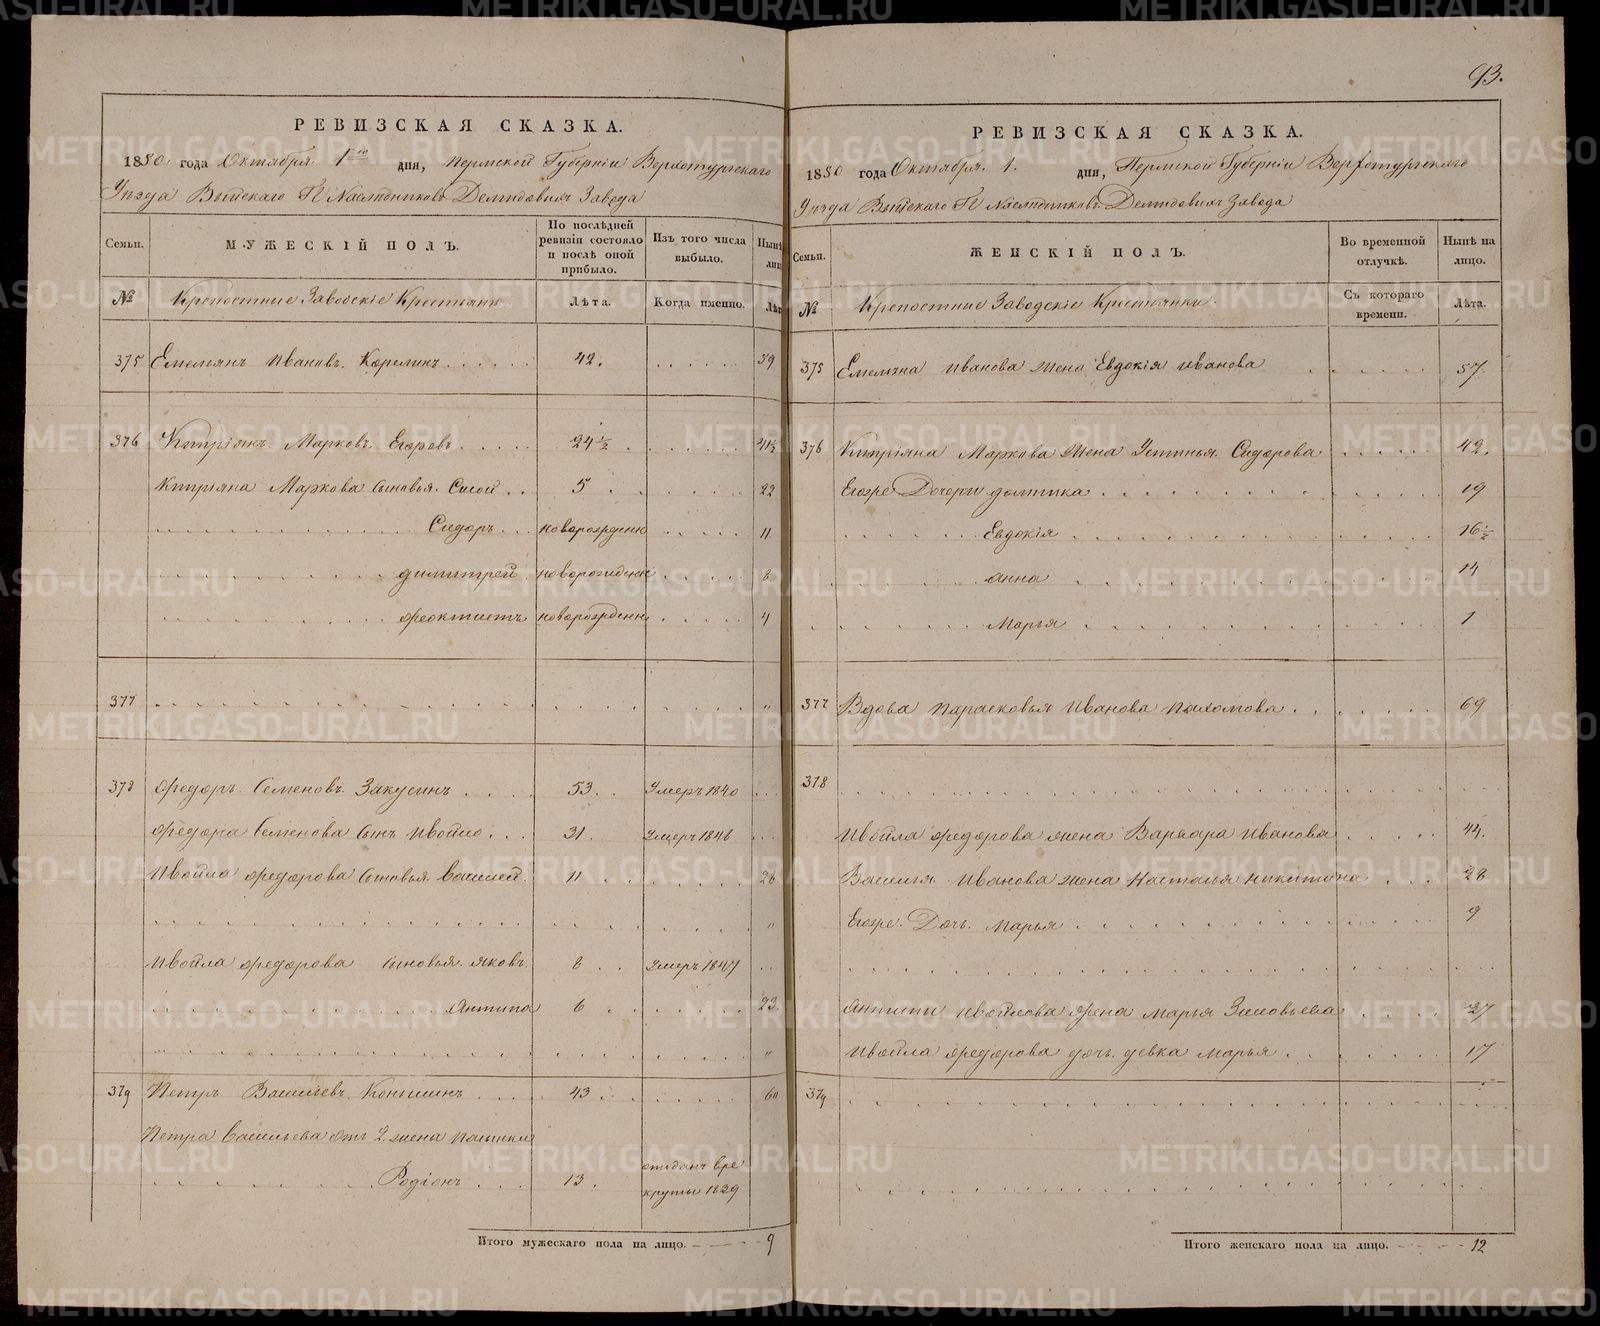 93.
РЕВИЗСКАЯ СКАЗКА.
1850 года Октября 1го дня, Пермской Губерніи Верхотурскаго
Уѣзда Выйскаго Г. Наслѣдниковъ Демидовыхъ Завода
Семьи. МУЖЕСКІЙ ПОЛЪ. По послѣдней ревизіи состояло и послѣ оной прибыло. Изъ того числа выбыло. Нынѣ
№ Крепостные Заводскіе Крестьяне Лѣта. Когда именно. Лѣт
375 Емельянъ Ивановъ Корелинъ 42. 59
376 Кипріянъ Марковъ Егоровъ 24½ 41½
Кипріяна Маркова сыновья Сысой 5 22
Сидоръ новорожденн 11
Димитрей новорожденн 8
Феоктистъ новорожденн 4
377
378 Федоръ Семеновъ Закусинъ 53 Умеръ 1840
Федора Семенова сынъ Ивойло 31. Умеръ 1846
Ивойла Федорова сыновья Василей 11 28
Ивойла Федорова сыновья Яковъ 8 Умеръ 1847
Антипа 6 23
379 Петръ Васильевъ Коньшинъ 43 60
Петра Васильева отъ 2. жены пасынки
Родіонъ 13. отданъ в ре
круты 1839
Итого мужескаго пола на лицо. 9
РЕВИЗСКАЯ СКАЗКА.
1850 года Октября 1. дня, Пермской Губерніи Верхотурскаго
Уѣзда Выйскаго Г. Наслѣдниковъ Демидовыхъ Завода
Семьи. ЖЕНСКІЙ ПОЛЪ. Во временной отлучкѣ. Нынѣ на лицо.
№ Крепостные Заводскіе Крестьянки Съ котораго времени. Лѣта.
375 Емельяна Иванова жена Евдокія Иванова 57
376 Кипріяна Маркова жена Устинья Сидорова 42.
Егоже Дочери Домника 19
Евдокія 16½
Анна 14
Марья 1
377 Вдова Парасковья Иванова Пахомова 69
378
Ивойла Федорова жена Варвара Иванова 44.
Василья Иванова жена Насталья Никитина 28
Егоже Дочь Марья 9
Антипы Ивойлова жена Марья Зиновьева 27
Ивойла Федорова дочь девка Марья 17
379
Итого женскаго пола на лицо. 12
METRIKI.GASO-URAL.RU